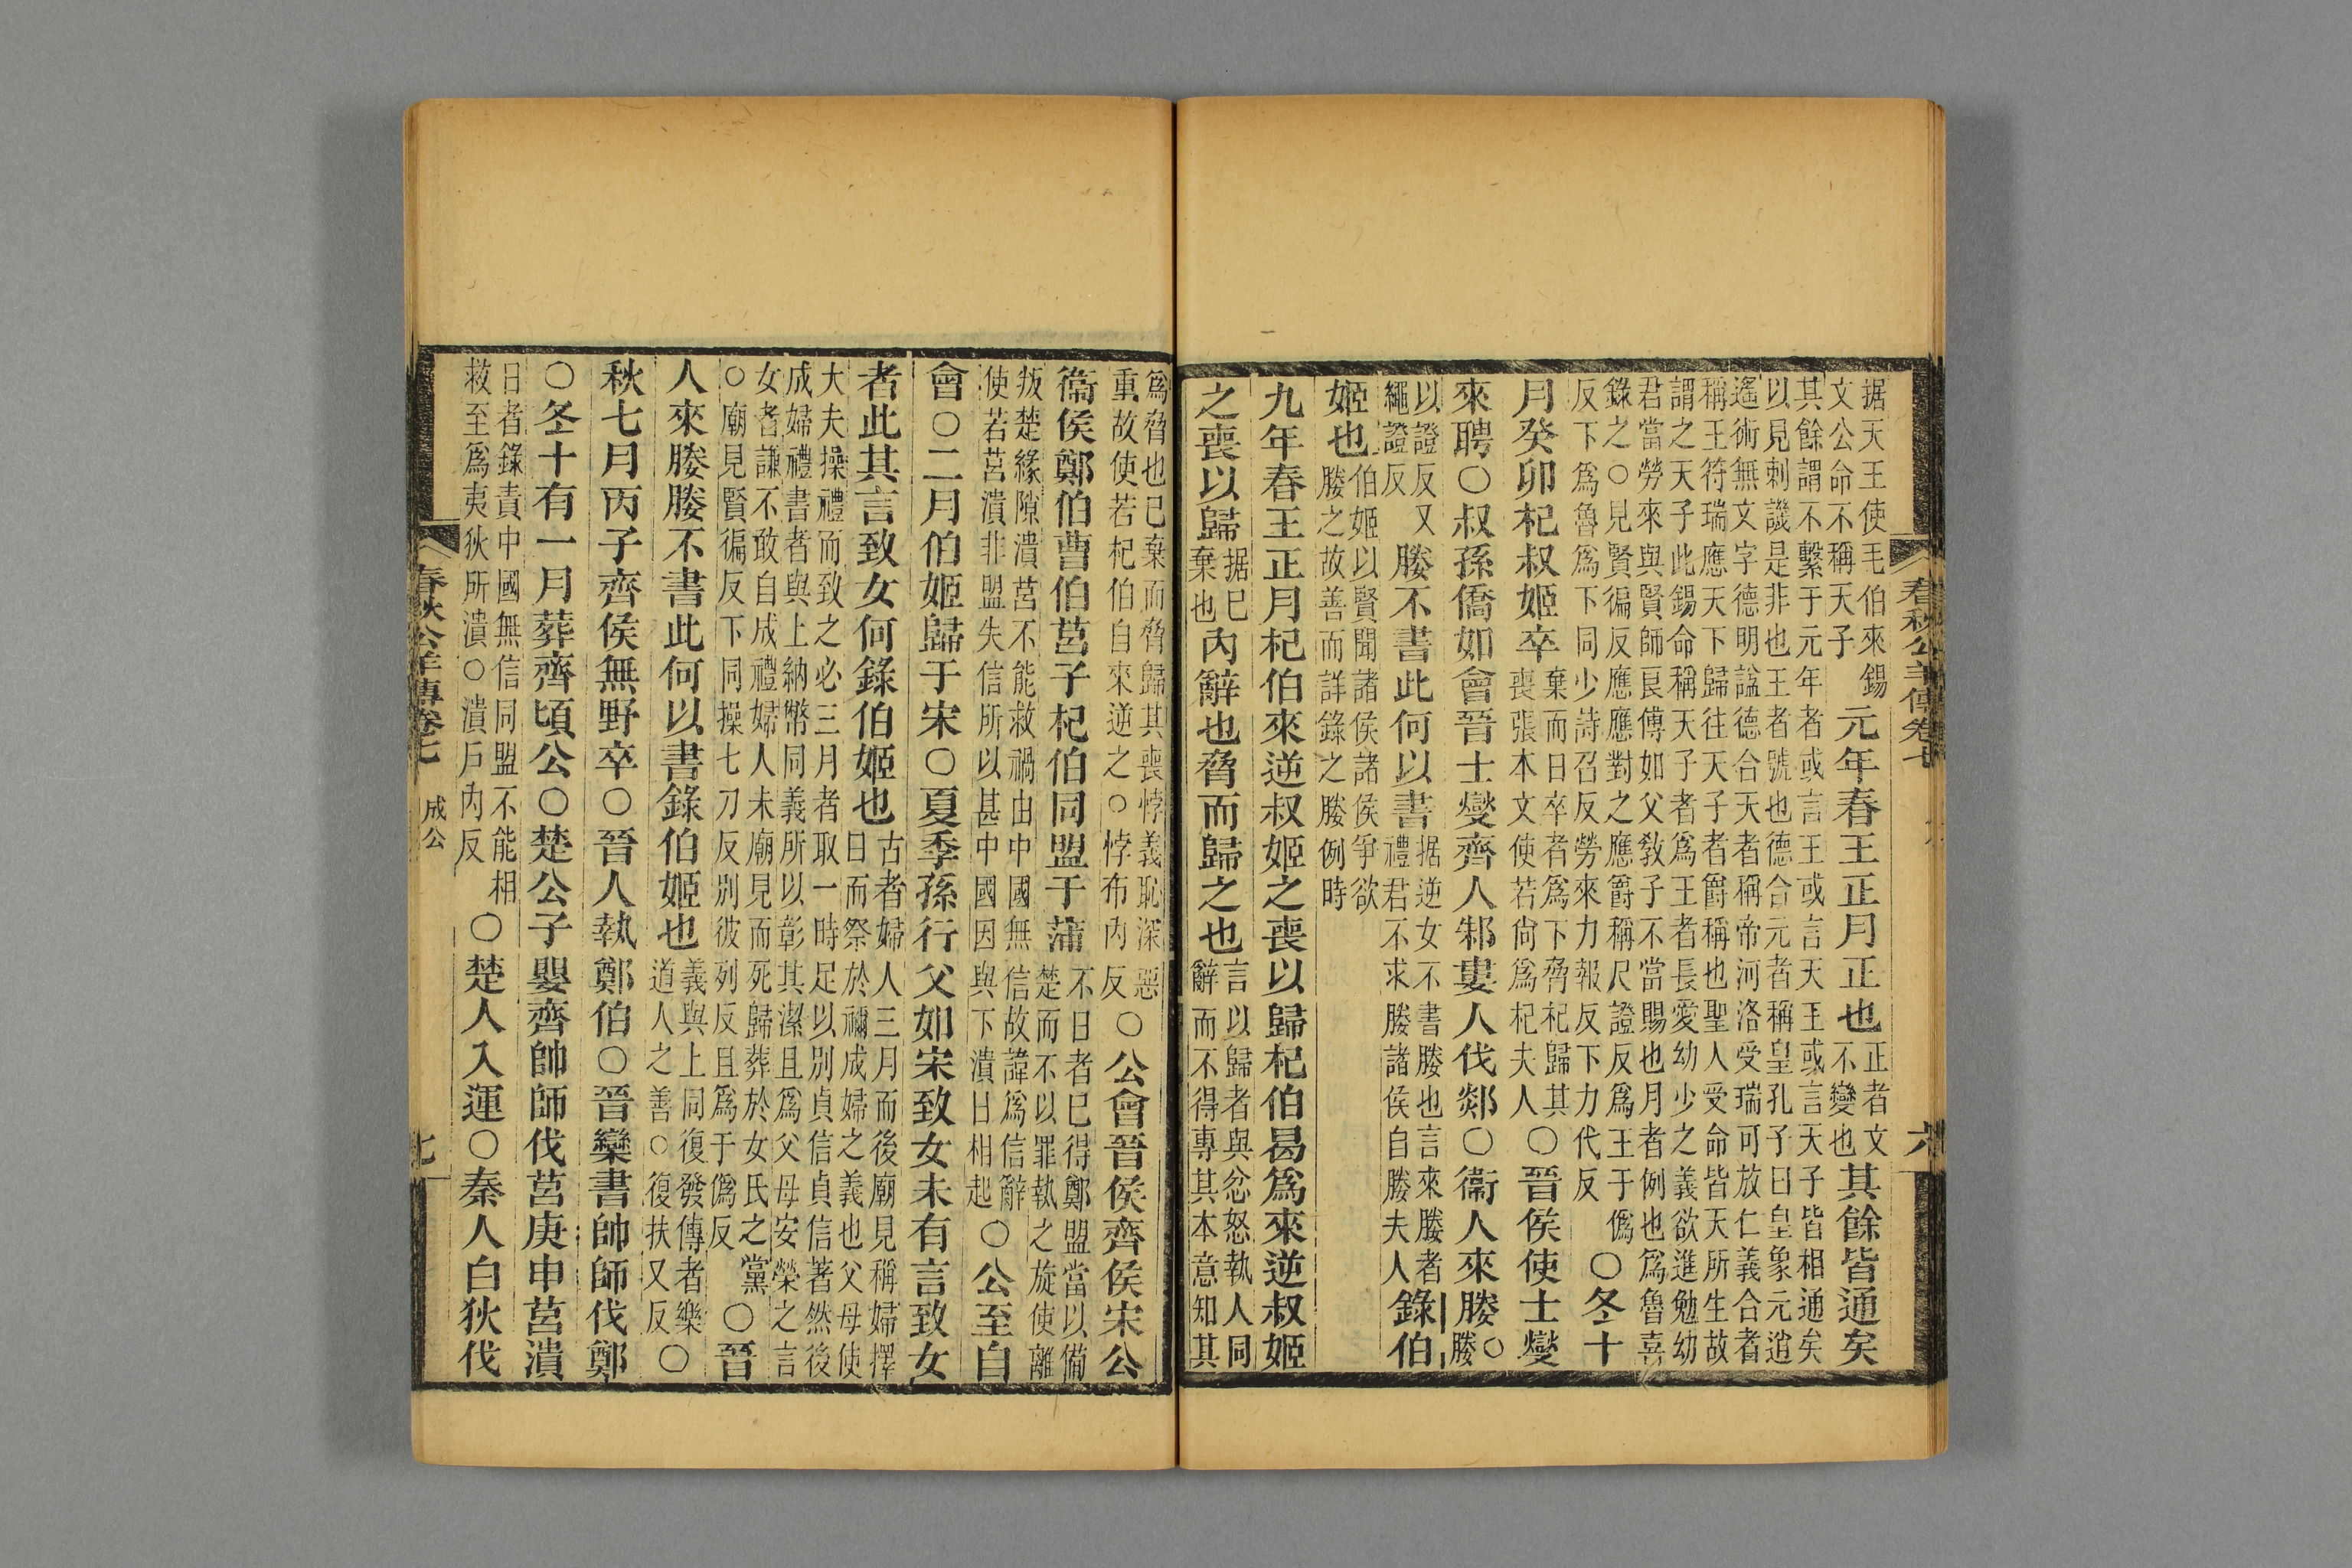 春秋公羊傳卷七
六
据天王使毛伯來錫
文公命不稱天子
元年春王正月正也
正者文
不變也
其餘皆通矣
其餘謂不繫于元年者或言王或言天王或言天子皆相通矣
以見刺譏是非也王者號也德合元者稱皇孔子曰皇象元逍
遙術無文字德明謚德合天者稱帝河洛受瑞可放仁義合者
稱王符瑞應天下歸往天子者爵稱也聖人受命皆天所生故
謂之天子此錫命稱天子者爲王者長愛幼少之義欲進勉幼
君當勞來與賢師良傅如父教子不當賜也月者例也爲魯喜
錄之○見賢徧反應應對之應爵稱尺證反爲王于僞
反下爲魯爲下同少詩召反勞來力報反下力代反
○冬十
月癸卯杞叔姬卒
棄而日卒者爲下脅杞歸其
喪張本文使若尚爲杞夫人
○晉侯使士燮
來聘○叔孫僑如會晉士燮齊人邾婁人伐郯○衞人來媵
○
媵
以證反又
繩證反
媵不書此何以書
据逆女不書媵也言來媵者
禮君不求媵諸侯自媵夫人
錄伯
姬也
伯姬以賢聞諸侯諸侯爭欲
媵之故善而詳錄之媵例時
九年春王正月杞伯來逆叔姬之喪以歸杞伯曷爲來逆叔姬
之喪以歸
据已
棄也
內辭也脅而歸之也
言以歸者與忿怒執人同
辭而不得專其本意知其
爲脅也已棄而脅歸其喪悖義恥深惡
重故使若杞伯自來逆之○悖布內反
○公會晉侯齊侯宋公
衞侯鄭伯曹伯莒子杞伯同盟于蒲
不日者已得鄭盟當以備
楚而不以罪執之旋使離
叛楚緣隙潰莒不能救禍由中國無信故諱爲信辭
使若莒潰非盟失信所以甚中國因與下潰日相起
○公至自
會○二月伯姬歸于宋○夏季孫行父如宋致女未有言致女
者此其言致女何錄伯姬也
古者婦人三月而後廟見稱婦擇
日而祭於禰成婦之義也父母使
大夫操禮而致之必三月者取一時足以別貞信貞信著然後
成婦禮書者與上納幣同義所以彰其潔且爲父母安榮之言
女者謙不敢自成禮婦人未廟見而死歸葬於女氏之黨
○廟見賢徧反下同操七刀反別彼列反且爲于僞反
○晉
人來媵媵不書此何以書錄伯姬也
義與上同復發傳者樂
道人之善○復扶又反
○
秋七月丙子齊侯無野卒○晉人執鄭伯○晉欒書帥師伐鄭
○冬十有一月葬齊頃公○楚公子嬰齊帥師伐莒庚申莒潰
日者錄責中國無信同盟不能相
救至爲夷狄所潰○潰戶內反
○楚人入運○秦人白狄伐
春秋公羊傳卷七
成公
七